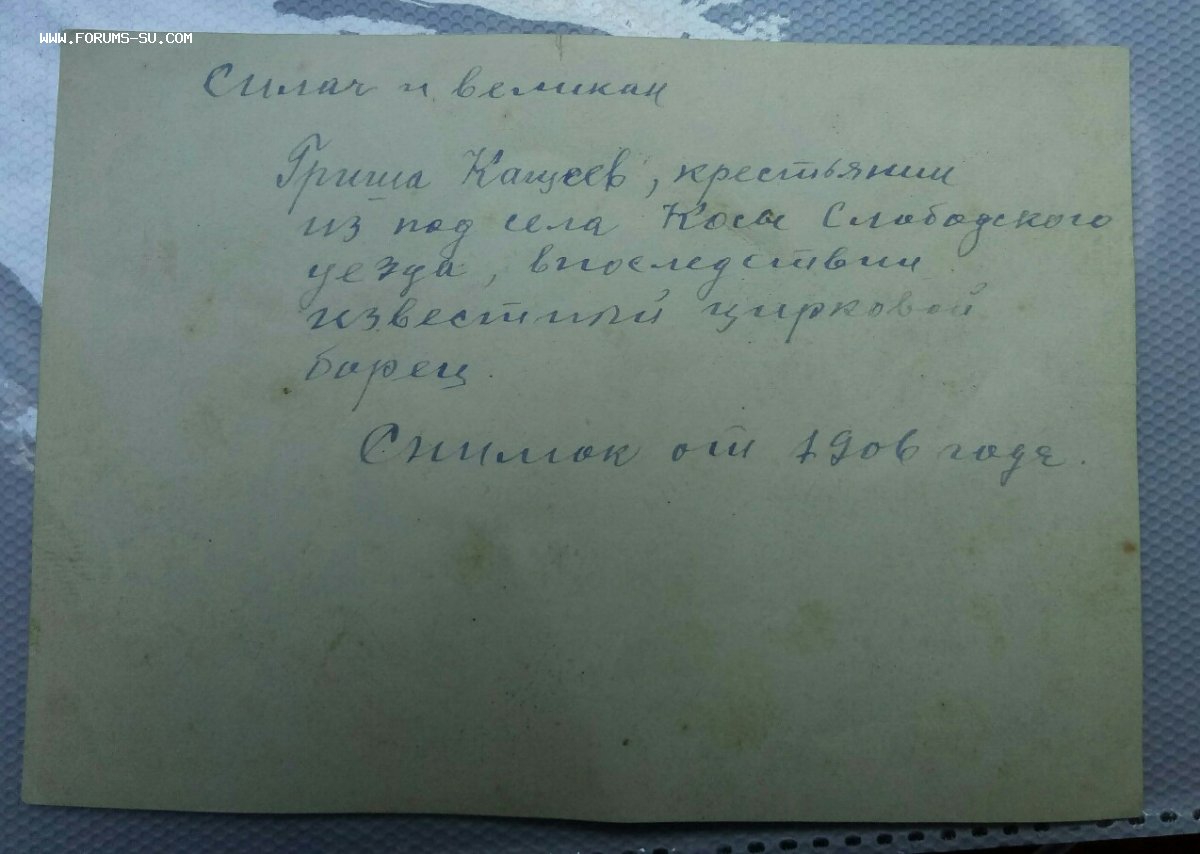 WWW.FORUMS-SU.COM
Силач и великан
Гриша Кащеев, крестьянин
из под села Косы Слободского
уезда, впоследствии
известный цирковой
борец.
Снимок от 1906 года.